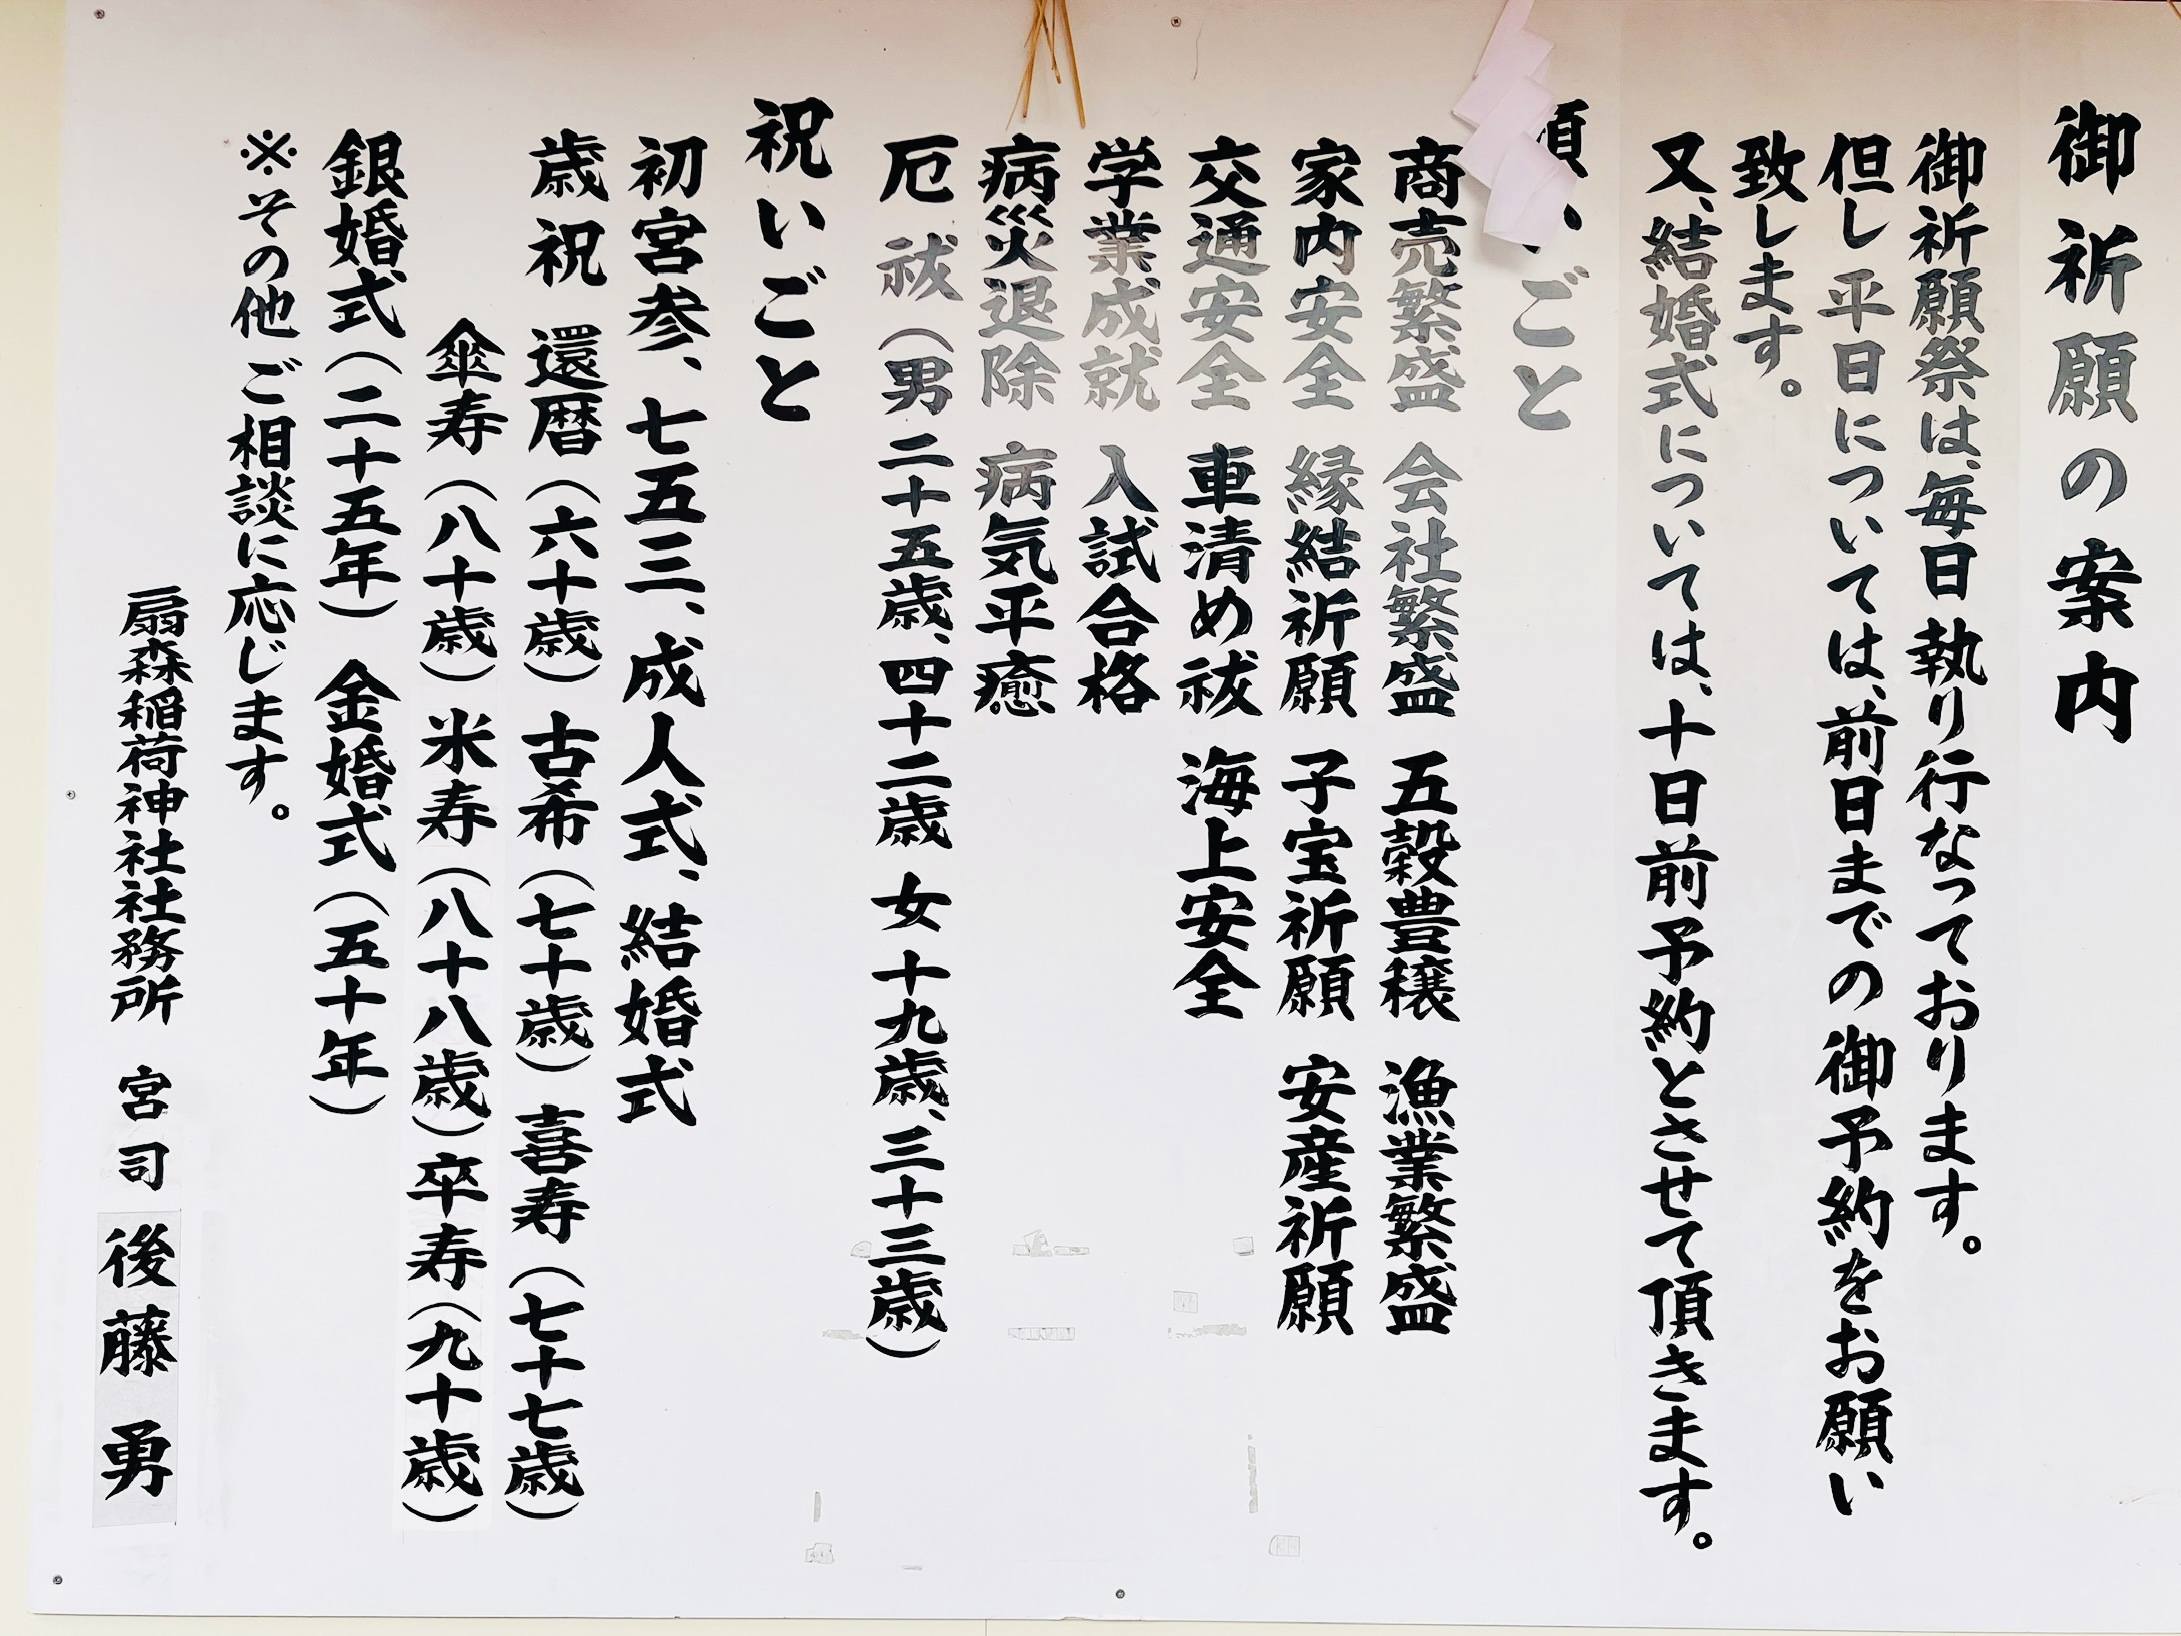 御祈願の案内
御祈願祭は、毎日執り行なっております。
但し平日については、前日までの御予約をお願い
致します。
又、結婚式については、十日前予約とさせて頂きます。
願いごと
商売繁盛 会社繁盛 五穀豊穣 漁業繁盛
家内安全 縁結祈願 子宝祈願 安産祈願
交通安全 車清め祓 海上安全
学業成就 入試合格
病災退除 病気平癒
厄祓(男二十五歳、四十二歳 女十九歳、三十三歳)
祝いごと
初宮参、七五三、成人式、結婚式
歳祝 還暦(六十歳) 古希(七十歳) 喜寿(七十七歳)
傘寿(八十歳) 米寿(八十八歳) 卒寿(九十歳)
銀婚式(二十五年) 金婚式(五十年)
※その他ご相談に応じます。
扇森稲荷神社社務所 宮司 後藤 勇